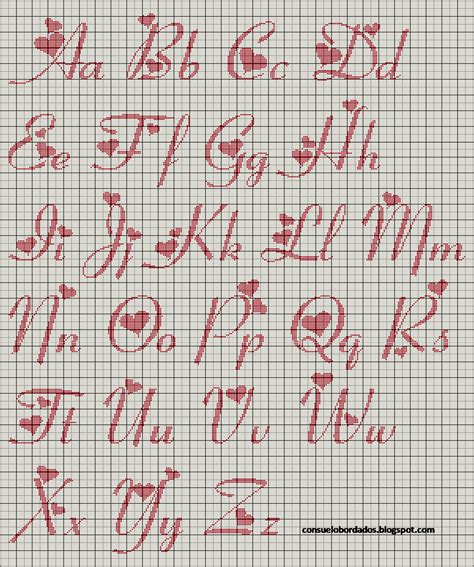 Aa Bb Cc Dd
Ee Ff Gg Hh
Ii Jj Kk Ll Mm
Nn Oo Pp Qq Rs
Tt Uu Vv Ww
Xx Yy Zz
consuelobordados.blogspot.com